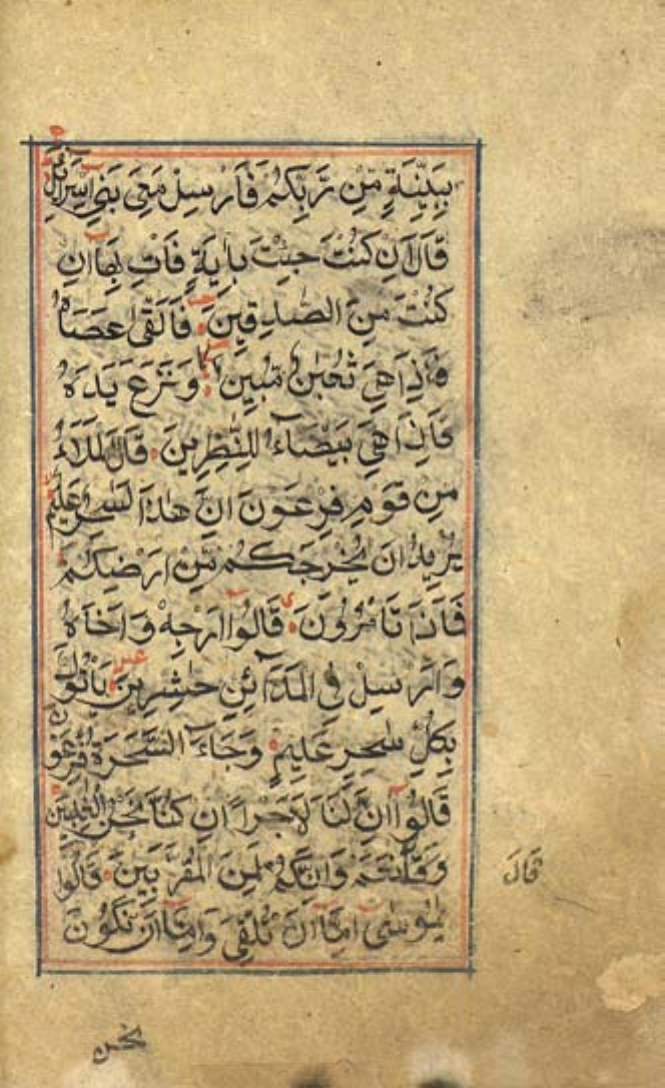 بِبَيِّنَةٍ مِّن رَّبِّكُمْ فَاَرْسِلْ مَعِىَ بَنِى اِسْرَائِيْلَ
قَالَ اِنْ كُنْتَ جِئْتَ بِاٰيَةٍ فَاْتِ بِهَا اِنْ
كُنْتَ مِنَ الصّٰدِقِينَ فَاَلْقٰى عَصَاهُ
فَاِذَا هِىَ ثُعْبَانٌ مُّبِيْنٌ وَنَزَعَ يَدَهُ
فَاِذَا هِىَ بَيْضَآءُ لِلنّٰظِرِينَ قَالَ الْمَلَاُ
مِنْ قَوْمِ فِرْعَوْنَ اِنَّ هٰذَا لَسٰحِرٌ عَلِيْمٌ
يُرِيْدُ اَنْ يُّخْرِجَكُمْ مِّنْ اَرْضِكُمْ
فَمَاذَا تَاْمُرُوْنَ قَالُوْا اَرْجِهْ وَاَخَاهُ
وَاَرْسِلْ فِى الْمَدَآئِنِ حٰشِرِيْنَ يَاْتُوْكَ
بِكُلِّ سٰحِرٍ عَلِيْمٍ وَجَآءَ السَّحَرَةُ فِرْعَوْنَ
قَالُوْا اِنَّ لَنَا لَاَجْرًا اِنْ كُنَّا نَحْنُ الْغٰلِبِيْنَ
وَاِنَّكُمْ لَمِنَ الْمُقَرَّبِيْنَ قَالُوْا
يٰمُوْسٰى اِمَّا اَنْ تُلْقِىَ وَاِمَّا اَنْ نَّكُوْنَ
قَالَ
نحن